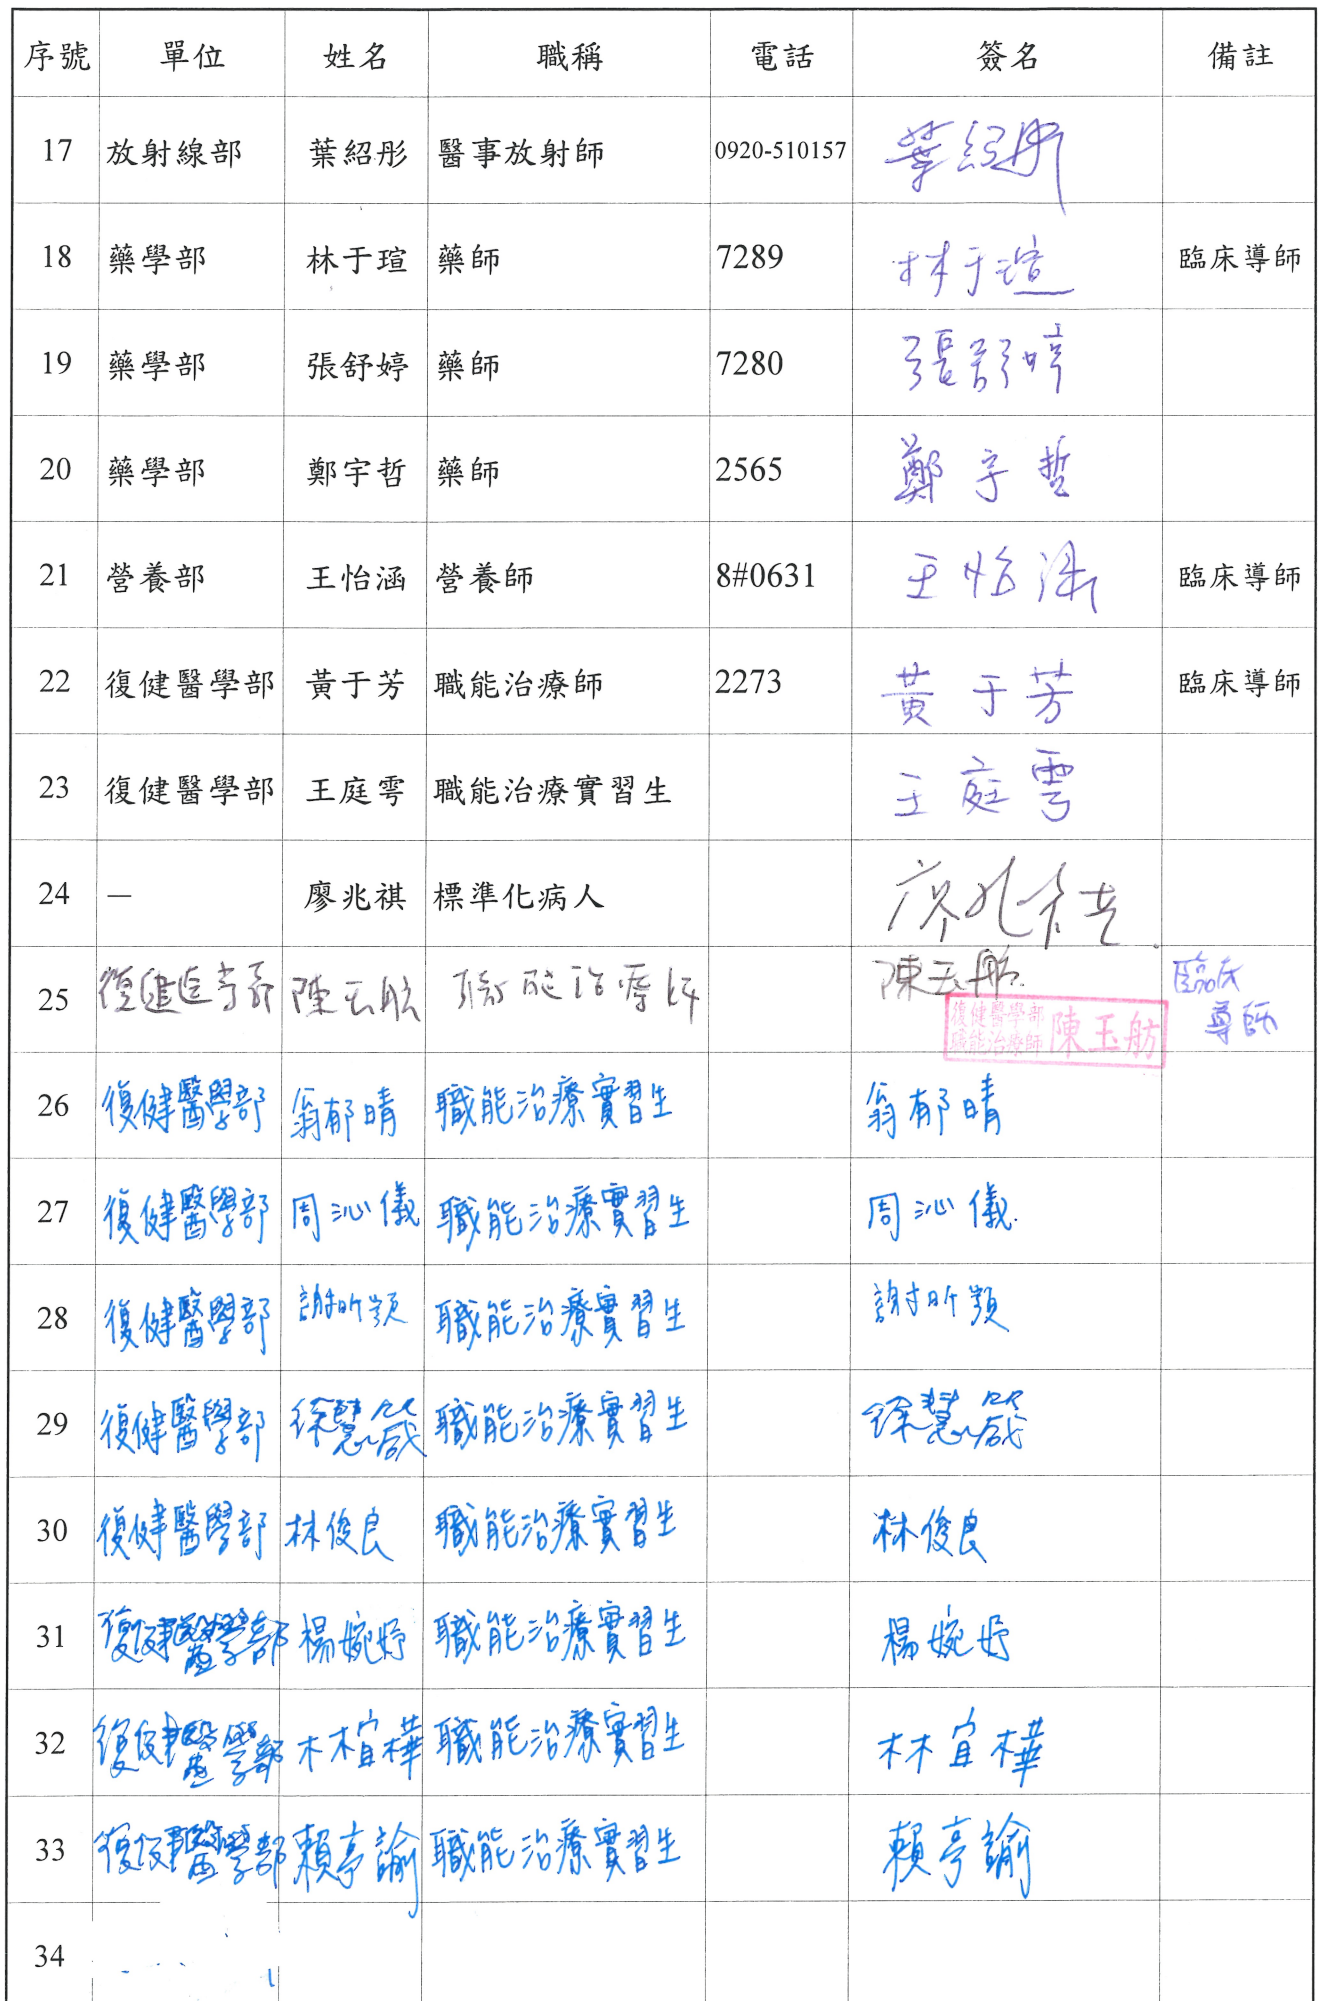 序號 單位 姓名 職稱 電話 簽名 備註
17 放射線部 葉紹彤 醫事放射師 0920-510157 葉紹彤
18 藥學部 林于瑄 藥師 7289 林于瑄 臨床導師
19 藥學部 張舒婷 藥師 7280 張舒婷
20 藥學部 鄭宇哲 藥師 2565 鄭宇哲
21 營養部 王怡涵 營養師 8#0631 王怡涵 臨床導師
22 復健醫學部 黃于芳 職能治療師 2273 黃于芳 臨床導師
23 復健醫學部 王庭雩 職能治療實習生 王庭雩
24 — 廖兆祺 標準化病人 廖兆祺
25 復健醫學部 陳玉舫 職能治療師 陳玉舫 臨床
導師
復健醫學部
職能治療師 陳玉舫
26 復健醫學部 翁郁晴 職能治療實習生 翁郁晴
27 復健醫學部 周沁儀 職能治療實習生 周沁儀
28 復健醫學部 謝昕穎 職能治療實習生 謝昕穎
29 復健醫學部 徐慧箴 職能治療實習生 徐慧箴
30 復健醫學部 林俊良 職能治療實習生 林俊良
31 復健醫學部 楊婉妤 職能治療實習生 楊婉妤
32 復健醫學部 林宜樺 職能治療實習生 林宜樺
33 復健醫學部 賴亭諭 職能治療實習生 賴亭諭
34